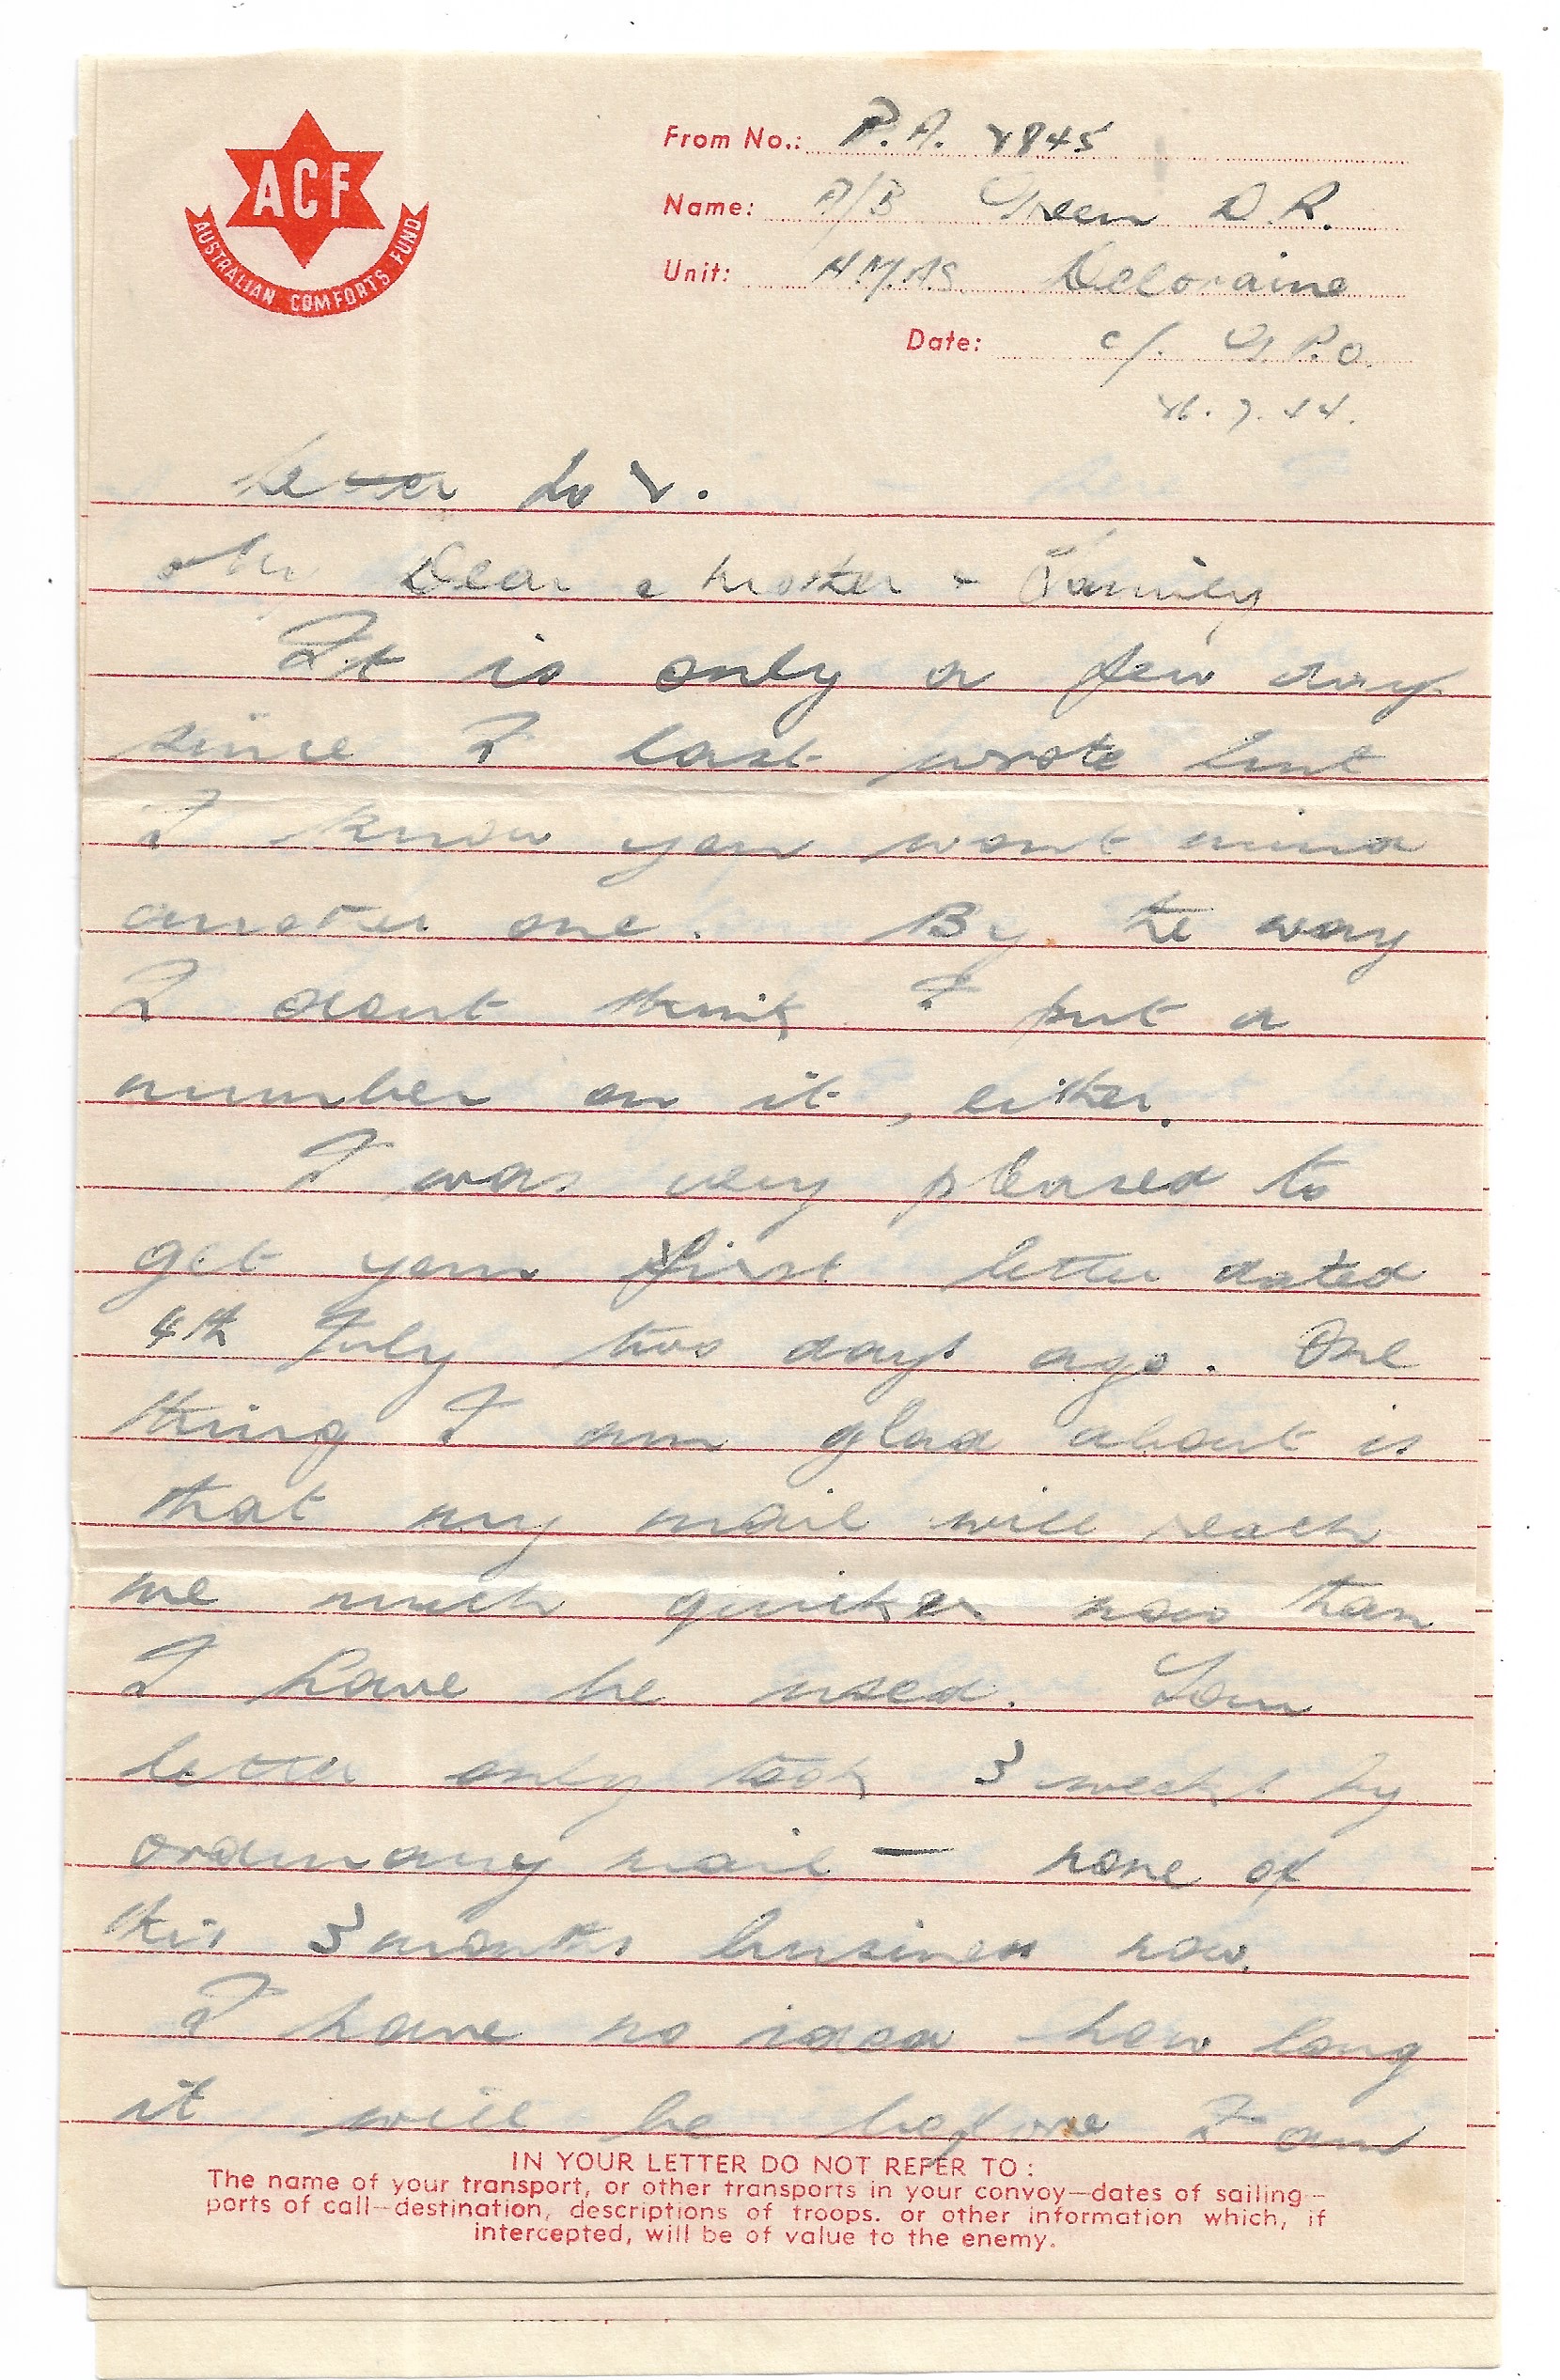 ACF
AUSTRALIAN COMFORTS FUND
From No.: P.A. 2845
Name: A/B Green D.R.
Unit: H.M.A.S. Deloraine
Date: c/. G.P.O.
26.7.44.
Letter No 2.
My Dear Mother & Family
It is only a few days
since I last wrote but
I know you wont mind
another one. By the way
I dont think I put a
number on it, either.
I was very pleased to
get your first letter dated
4th July two days ago. One
thing I am glad about is
that my mail will reach
me much quicker now than
I have be used. Your
letter only took 3 weeks by
ordinary mail — none of
this 3 months business now.
I have no idea how long
it will be before I am
IN YOUR LETTER DO NOT REFER TO:
The name of your transport, or other transports in your convoy—dates of sailing—
ports of call—destination, descriptions of troops. or other information which, if
intercepted, will be of value to the enemy.